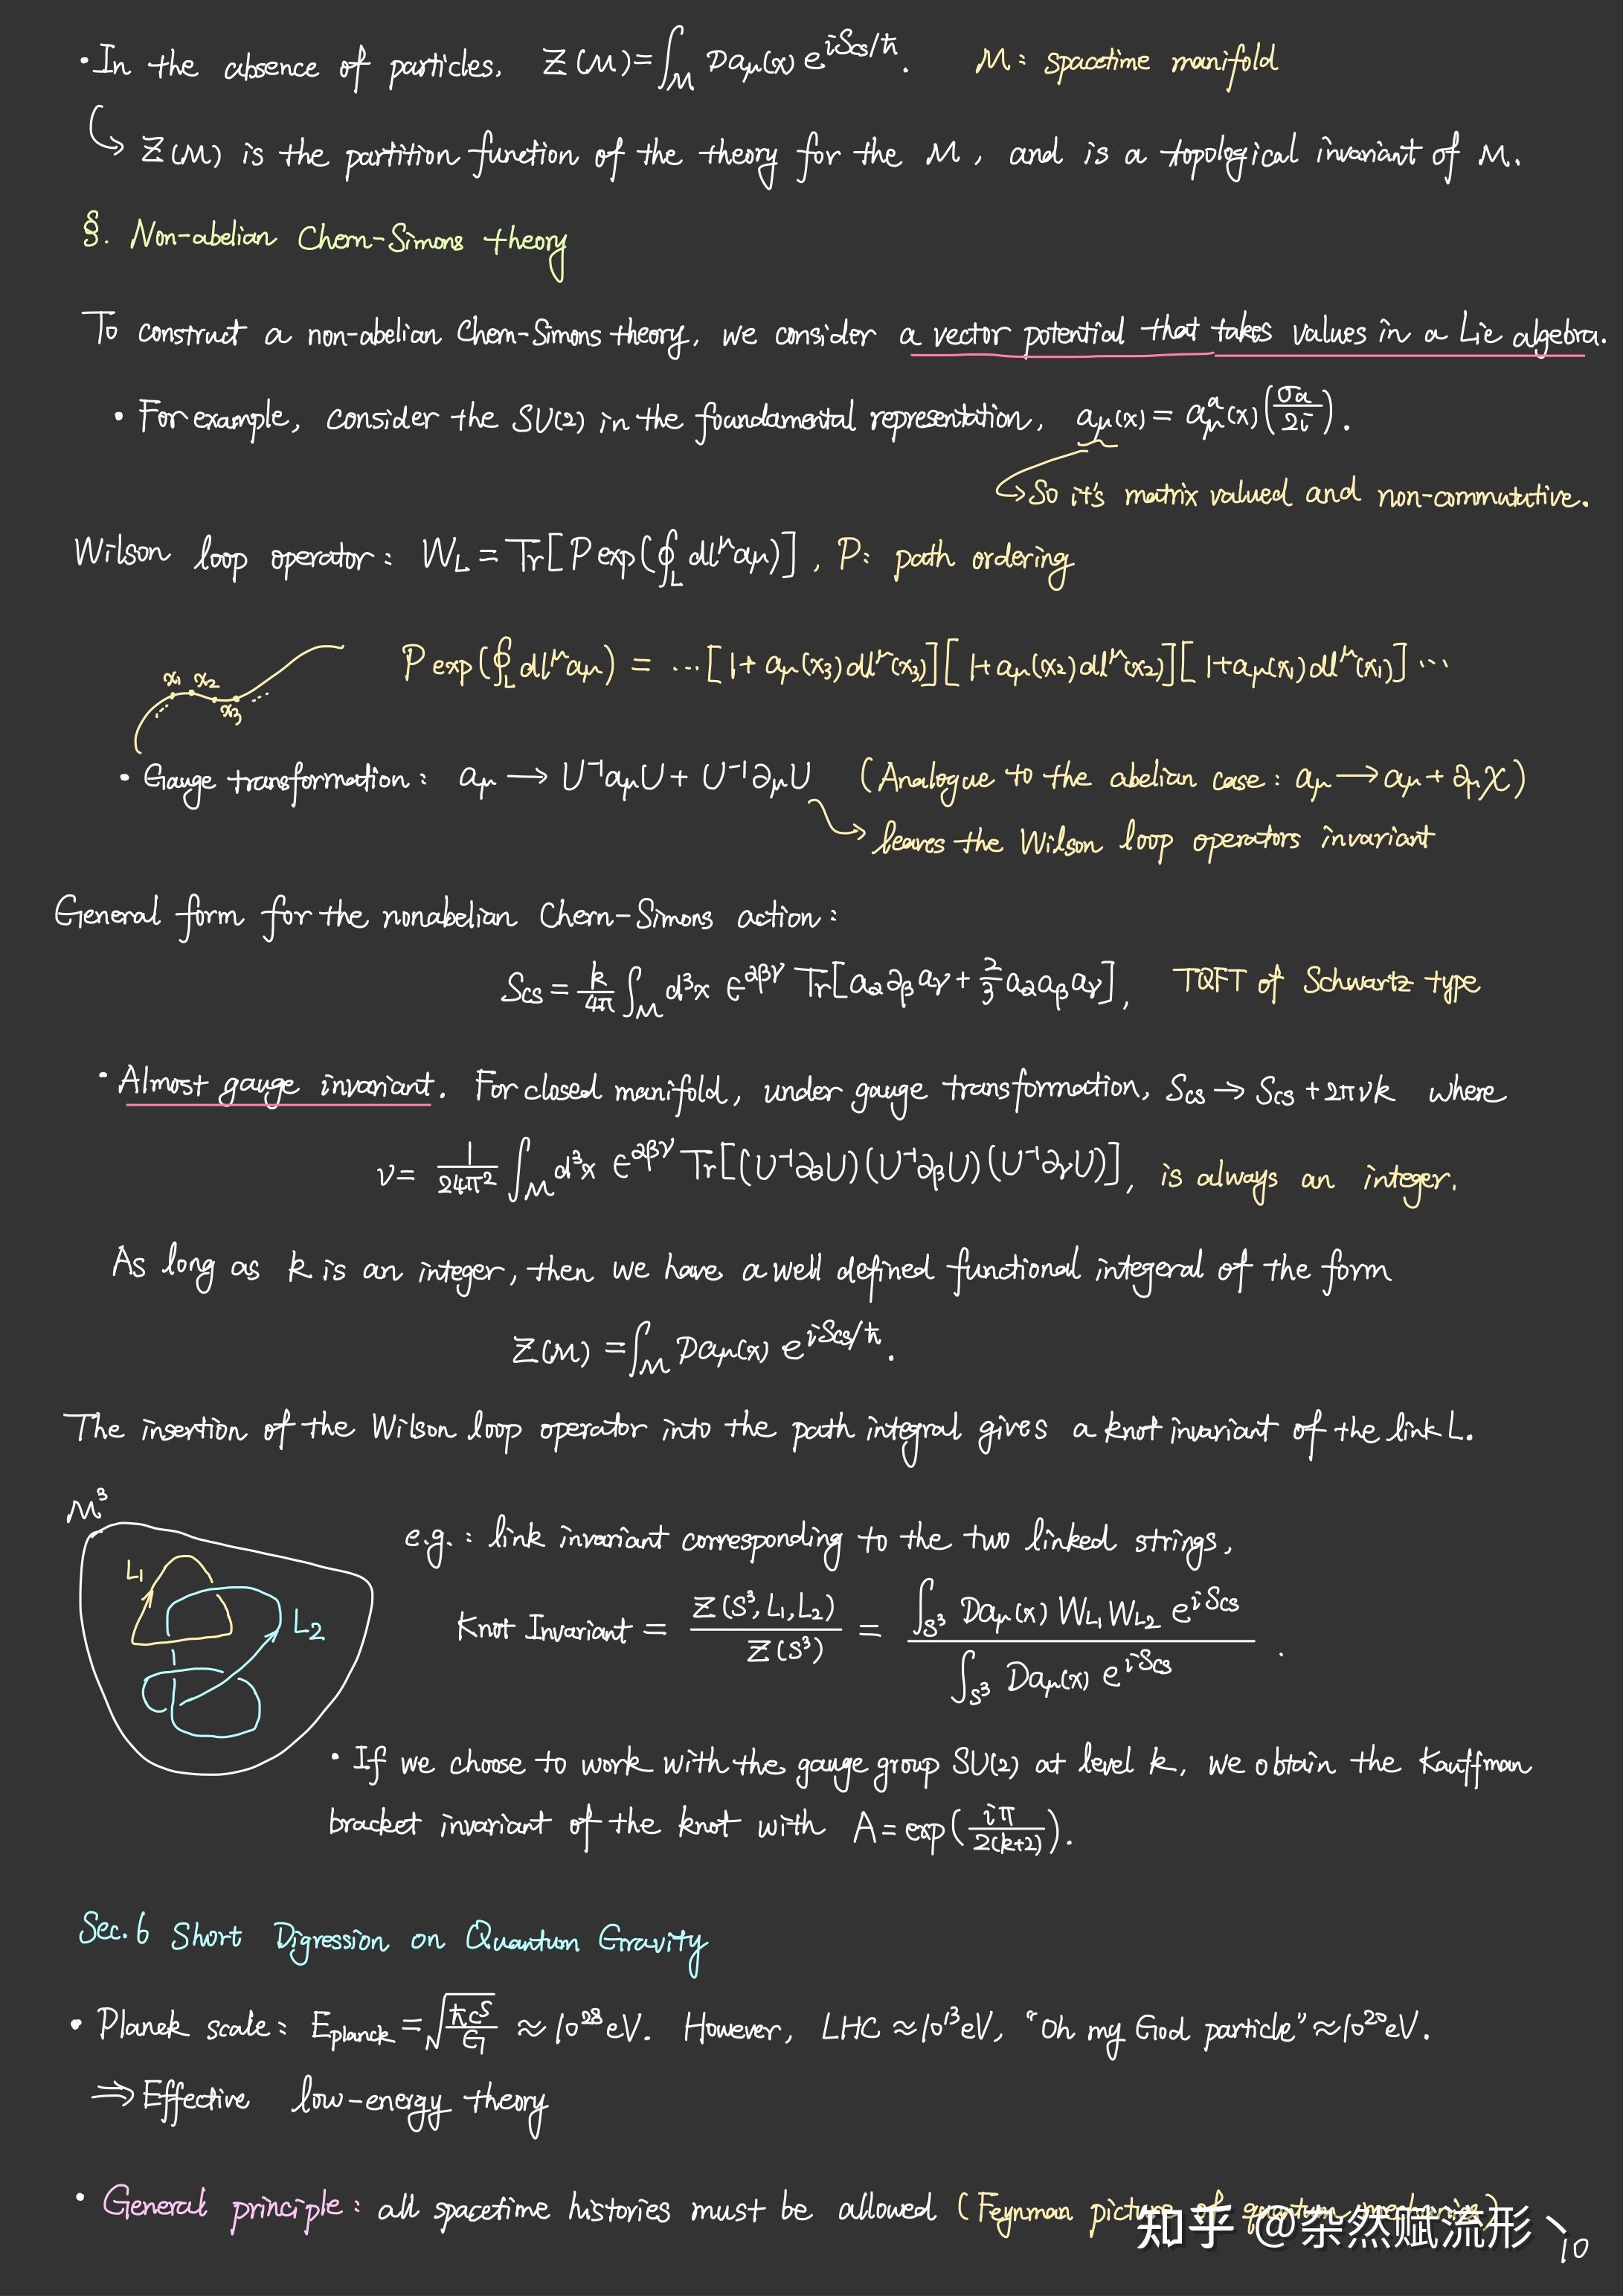 · In the absence of particles, Z(M)=∫_M Da_μ(x) e^{iS_CS/ħ}. M: spacetime manifold
Z(M) is the partition function of the theory for the M, and is a topological invariant of M.
§. Non-abelian Chern-Simons theory
To construct a non-abelian Chern-Simons theory, we consider a vector potential that takes values in a Lie algebra.
· For example, consider the SU(2) in the foundamental representation, a_μ(x) = a_μ^a(x)(σ_a/2i).
So it's matrix valued and non-commutative.
Wilson loop operator: W_L = Tr[P exp(∮_L dl^μ a_μ)], P: path ordering
P exp(∮_L dl^μ a_μ) = ···[1+a_μ(x_3)dl^μ(x_3)][1+a_μ(x_2)dl^μ(x_2)][1+a_μ(x_1)dl^μ(x_1)]···
x_1 x_2
x_3
· Gauge transformation: a_μ → U^{-1}a_μU + U^{-1}∂_μU (Analogue to the abelian case: a_μ → a_μ + ∂_μχ)
leaves the Wilson loop operators invariant
General form for the nonabelian Chern-Simons action:
S_CS = k/4π ∫_M d³x ϵ^{αβγ} Tr[a_α∂_βa_γ + 2/3 a_αa_βa_γ], TQFT of Schwartz type
· Almost gauge invariant. For closed manifold, under gauge transformation, S_CS → S_CS + 2πνk where
ν = 1/24π² ∫_M d³x ϵ^{αβγ} Tr[(U^{-1}∂_αU)(U^{-1}∂_βU)(U^{-1}∂_γU)], is always an integer.
As long as k is an integer, then we have a well defined functional integeral of the form
Z(M) = ∫_M Da_μ(x) e^{iS_CS/ħ}.
The insertion of the Wilson loop operator into the path integral gives a knot invariant of the link L.
M³
L_1
L_2
e.g.: link invariant corresponding to the two linked strings,
Knot Invariant = Z(S³,L_1,L_2)/Z(S³) = ∫_{S³} Da_μ(x) W_{L_1} W_{L_2} e^{iS_CS} / ∫_{S³} Da_μ(x) e^{iS_CS} .
· If we choose to work with the gauge group SU(2) at level k, we obtain the Kauffman
bracket invariant of the knot with A = exp(iπ/2(k+2)).
Sec.6 Short Digression on Quantum Gravity
· Planck scale: E_planck = √(ħc⁵/G) ≈ 10²⁸ eV. However, LHC ≈ 10¹³ eV, "Oh my God particle" ≈ 10²⁰ eV.
⇒ Effective low-energy theory
· General principle: all spacetime histories must be allowed (Feynman picture of quantum mechanics)
知乎 @杂然赋流形丶
10